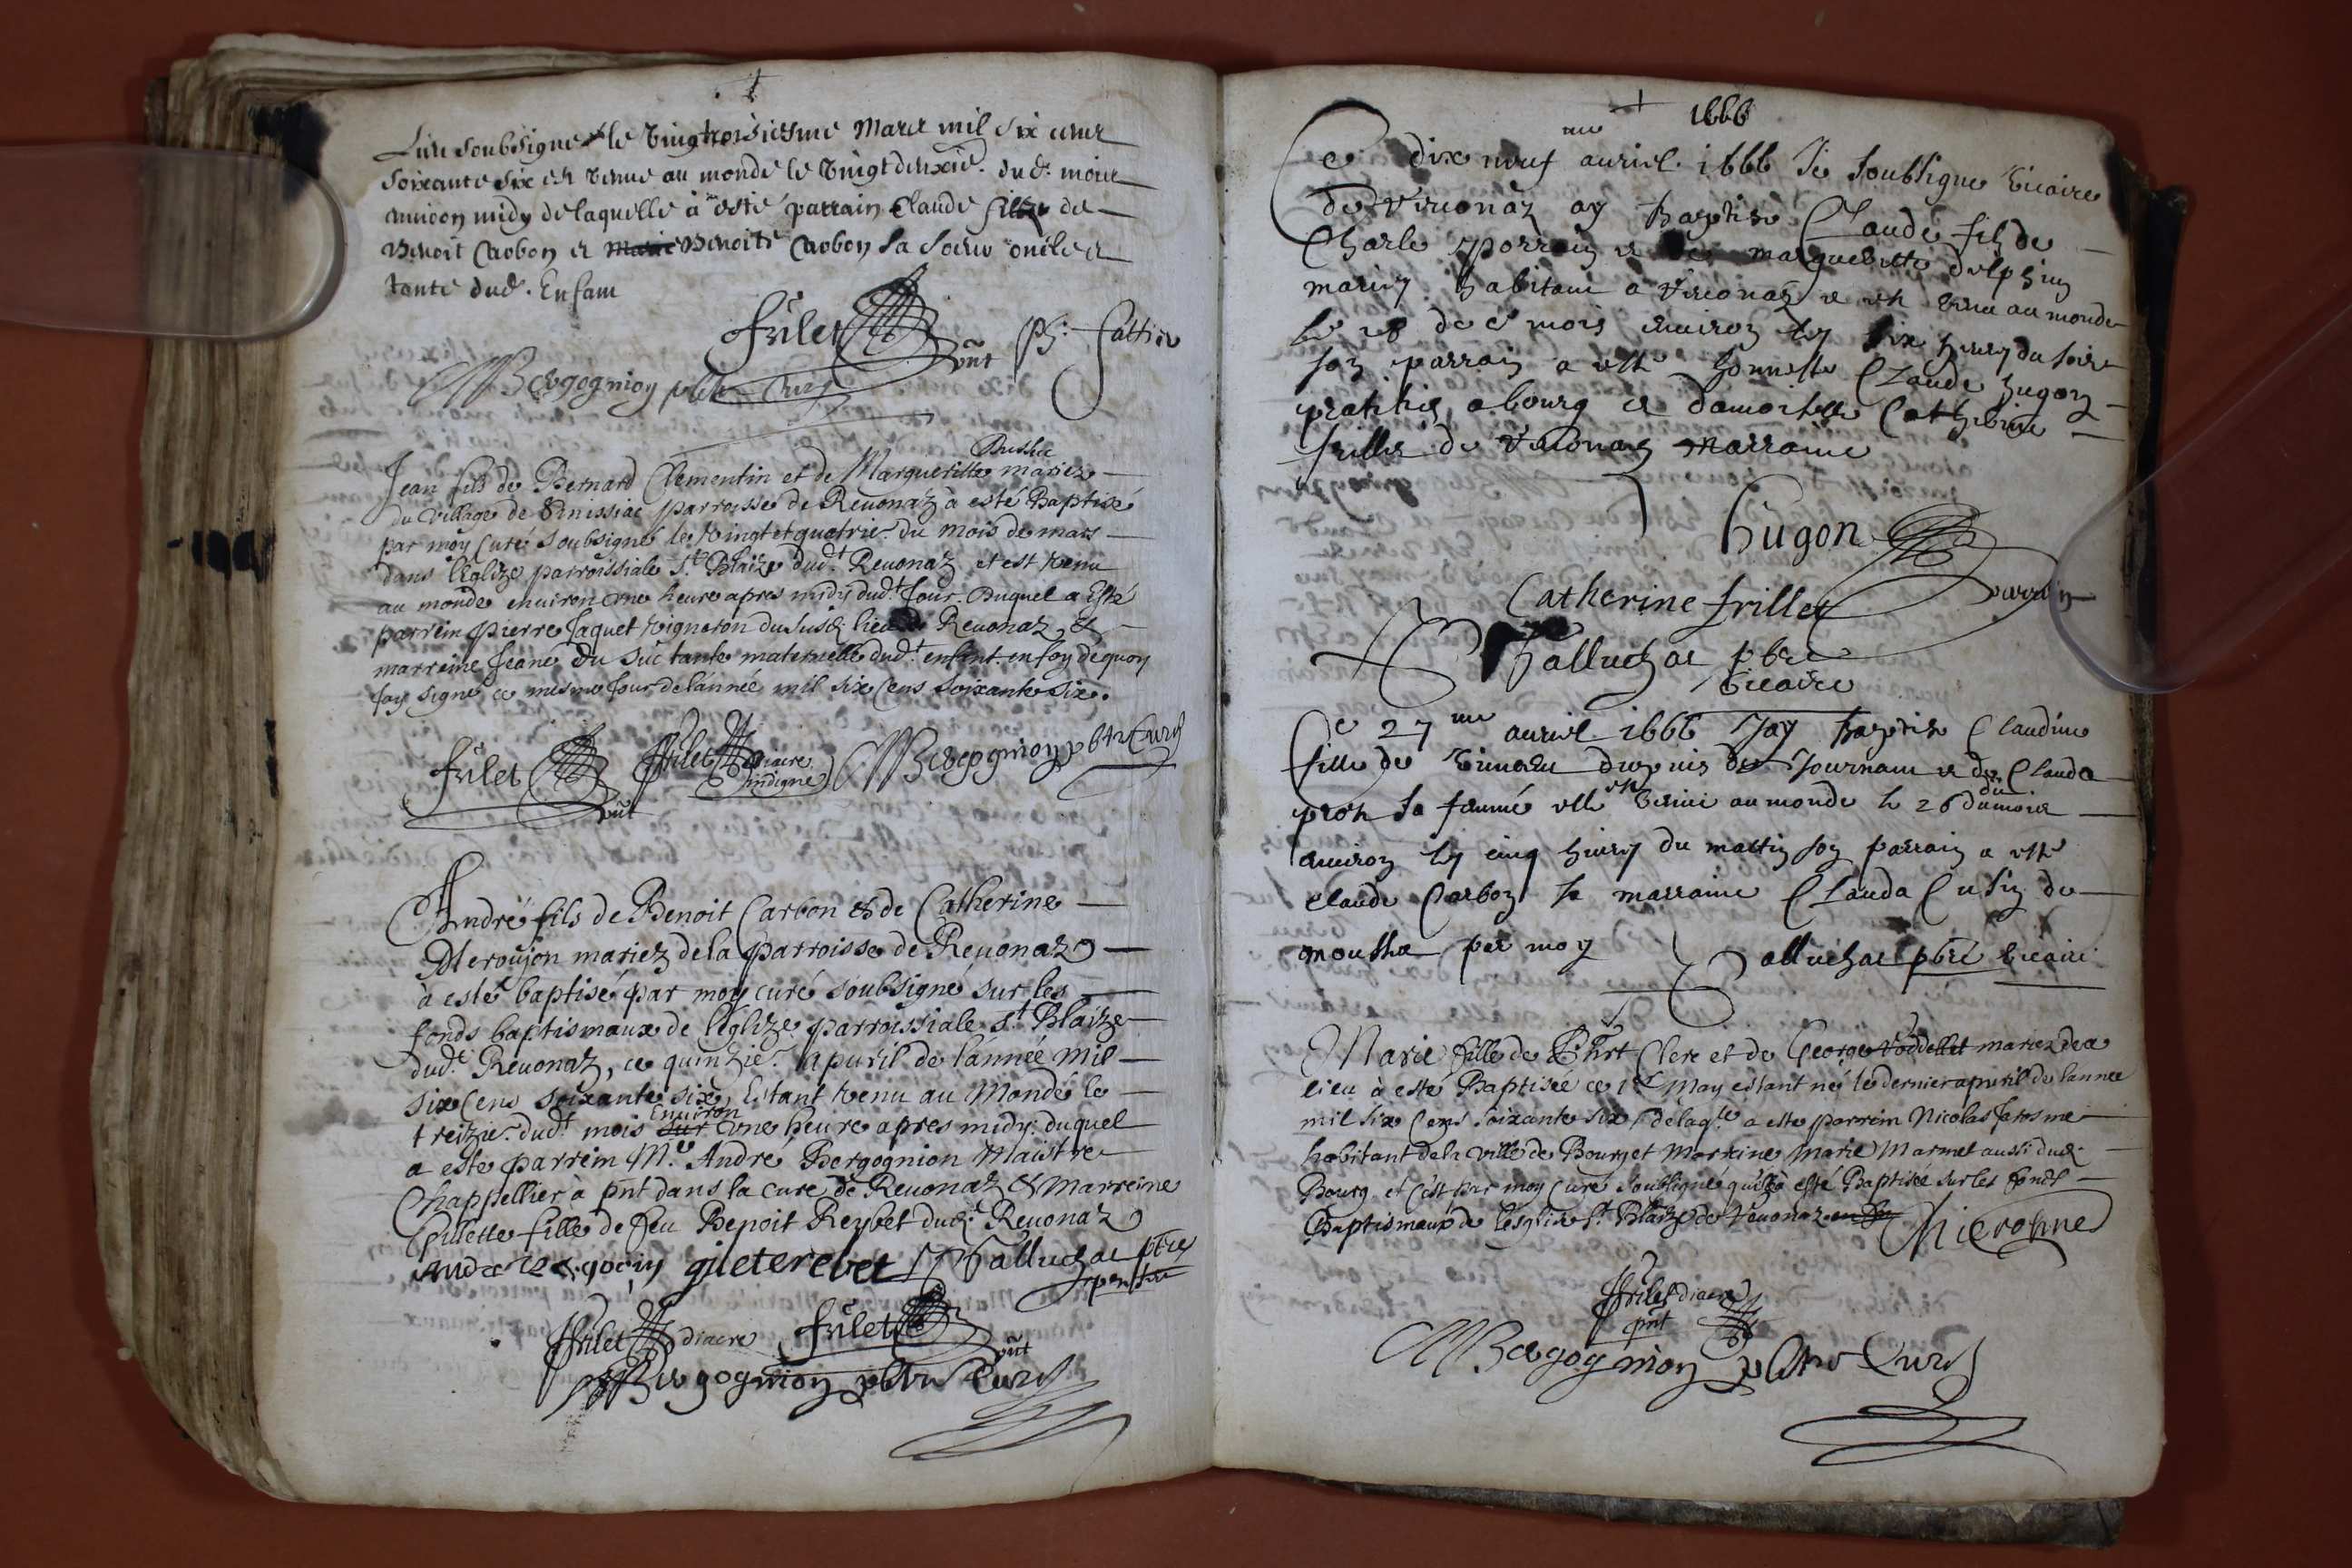 Curé soubsigne le vingtroisiesme Mars mil six cens
soixante six et venue au monde le vingt deuxie. dud. mois
environ midy de laquelle à esté parrain Claude fils de
Benoit Carbon et Marie Benoite Carbon sa soeur oncle et
tante dud. Enfant
frilet pñt
M Bergognion pbtre Curé
Jean fils de Bernard Clementin et de Margueritte mariez
du village de parroisse de Reuonaz à esté Baptisé
par moy Curé soubsigné le vingt et quatrie. du mois de mars
dans l'Eglize parroissiale St. Blaize dudt. Reuonaz et est venu
au monde enuiron une heure apres midy dudt. Jour. Duquel a Esté
parrein pierre Jaquet vigneron du susd. lieu de Reuonaz, &
marreine Jeane du Suc tante maternelle dudt. enfant. en foy dequoy
Jay signé ce mesme Jour de l'année mil six Cens soixante six.
frilet pñt
frilet Diacre indigne
M Bergognion pbtre Curé
André fils de Benoit Carbon & de Catherine
Meroujon mariez de la parroisse de Reuonaz
à esté baptisé par moy curé soubsigné sur les
fonds baptismaux de l'eglize parroissiale St. Blaize
dudt. Reuonaz, ce quinzie. apuril de l'année mil
six Cens soixante six, Estant venu au Monde le
Enuiron
treizie. dudt. mois sur une heure apres midy: duquel
a esté parrein Mre. André Bergognion Maistre
Chappellier à pñt dans la cure de Reuonaz & Marreine
Gillette fille de feu Benoit Reybet dud. Reuonaz
gileterebet Palluchat ptre
frilet diacre frilet pñt
M Bergognion pbtre Curé
1666
Ce dix neuf auriel 1666 Je soubsigne Vicaire
de Reuonaz ay baptisé Claude fils de
Charle et de marguerite delphin
mariez habitans a Reuonaz et est venu au monde
le 18 de ce mois enuiron les six heures du soir
son parrain a esté honneste Claude hugon
praticien a bourg et damoiselle Catherine
frillet de Reuonaz marraine
hugon parrain
Catherine frillet
Palluchat pbre
vicaire
Ce 27me auriel 1666 Jay baptisé Claudine
fille de dupuis de Journans et de Clauda
prost sa femme elle est venue au monde le 26 du mois
enuiron les cinq heures du mattin son parrain a esté
claude Carbon la marraine Clauda Cusin de
par moy Palluchat pbre vicaire
Marie fille de Phrt Clerc et de George mariez de ce
lieu à esté Baptisée ce 1er May estant né le dernier apuril de l'annee
mil six Cens soixante six / de laqle. a esté parrein Nicolas Jarosme
habitant de la ville de Bourg et Mareine Marie Marmet aussi dud.
Bourg et c'est par moy Curé soubsigné qu'ell'à esté Baptisée sur les fonds
Baptismaux de l'esglise St. Blaize de Reuonaz
N ierosme
frilet diacre
pñt
M Bergognion pbtre Curé